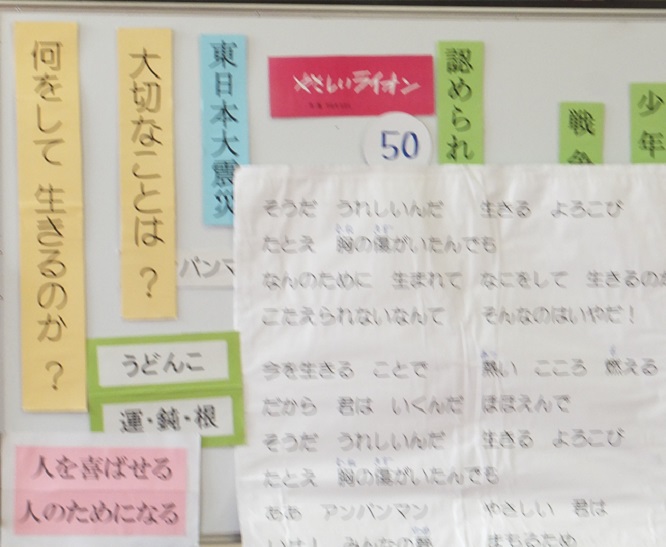 何をして 生きるのか ?
大切なことは ?
東日本大震災
やさしいライオン
50
認められ
戦争
少年
パンマ
うどんこ
運・鈍・根
人を喜ばせる
人のためになる
そうだ うれしいんだ 生きる よろこび
たとえ 胸の傷がいたんでも
なんのために 生まれて なにをして 生きるのか
こたえられないなんて そんなのはいやだ!
今を生きる ことで 熱い こころ 燃える
だから 君は いくんだ ほほえんで
そうだ うれしいんだ 生きる よろこび
たとえ 胸の傷がいたんでも
ああ アンパンマン やさしい 君は
いけ! みんなの夢 まもるため